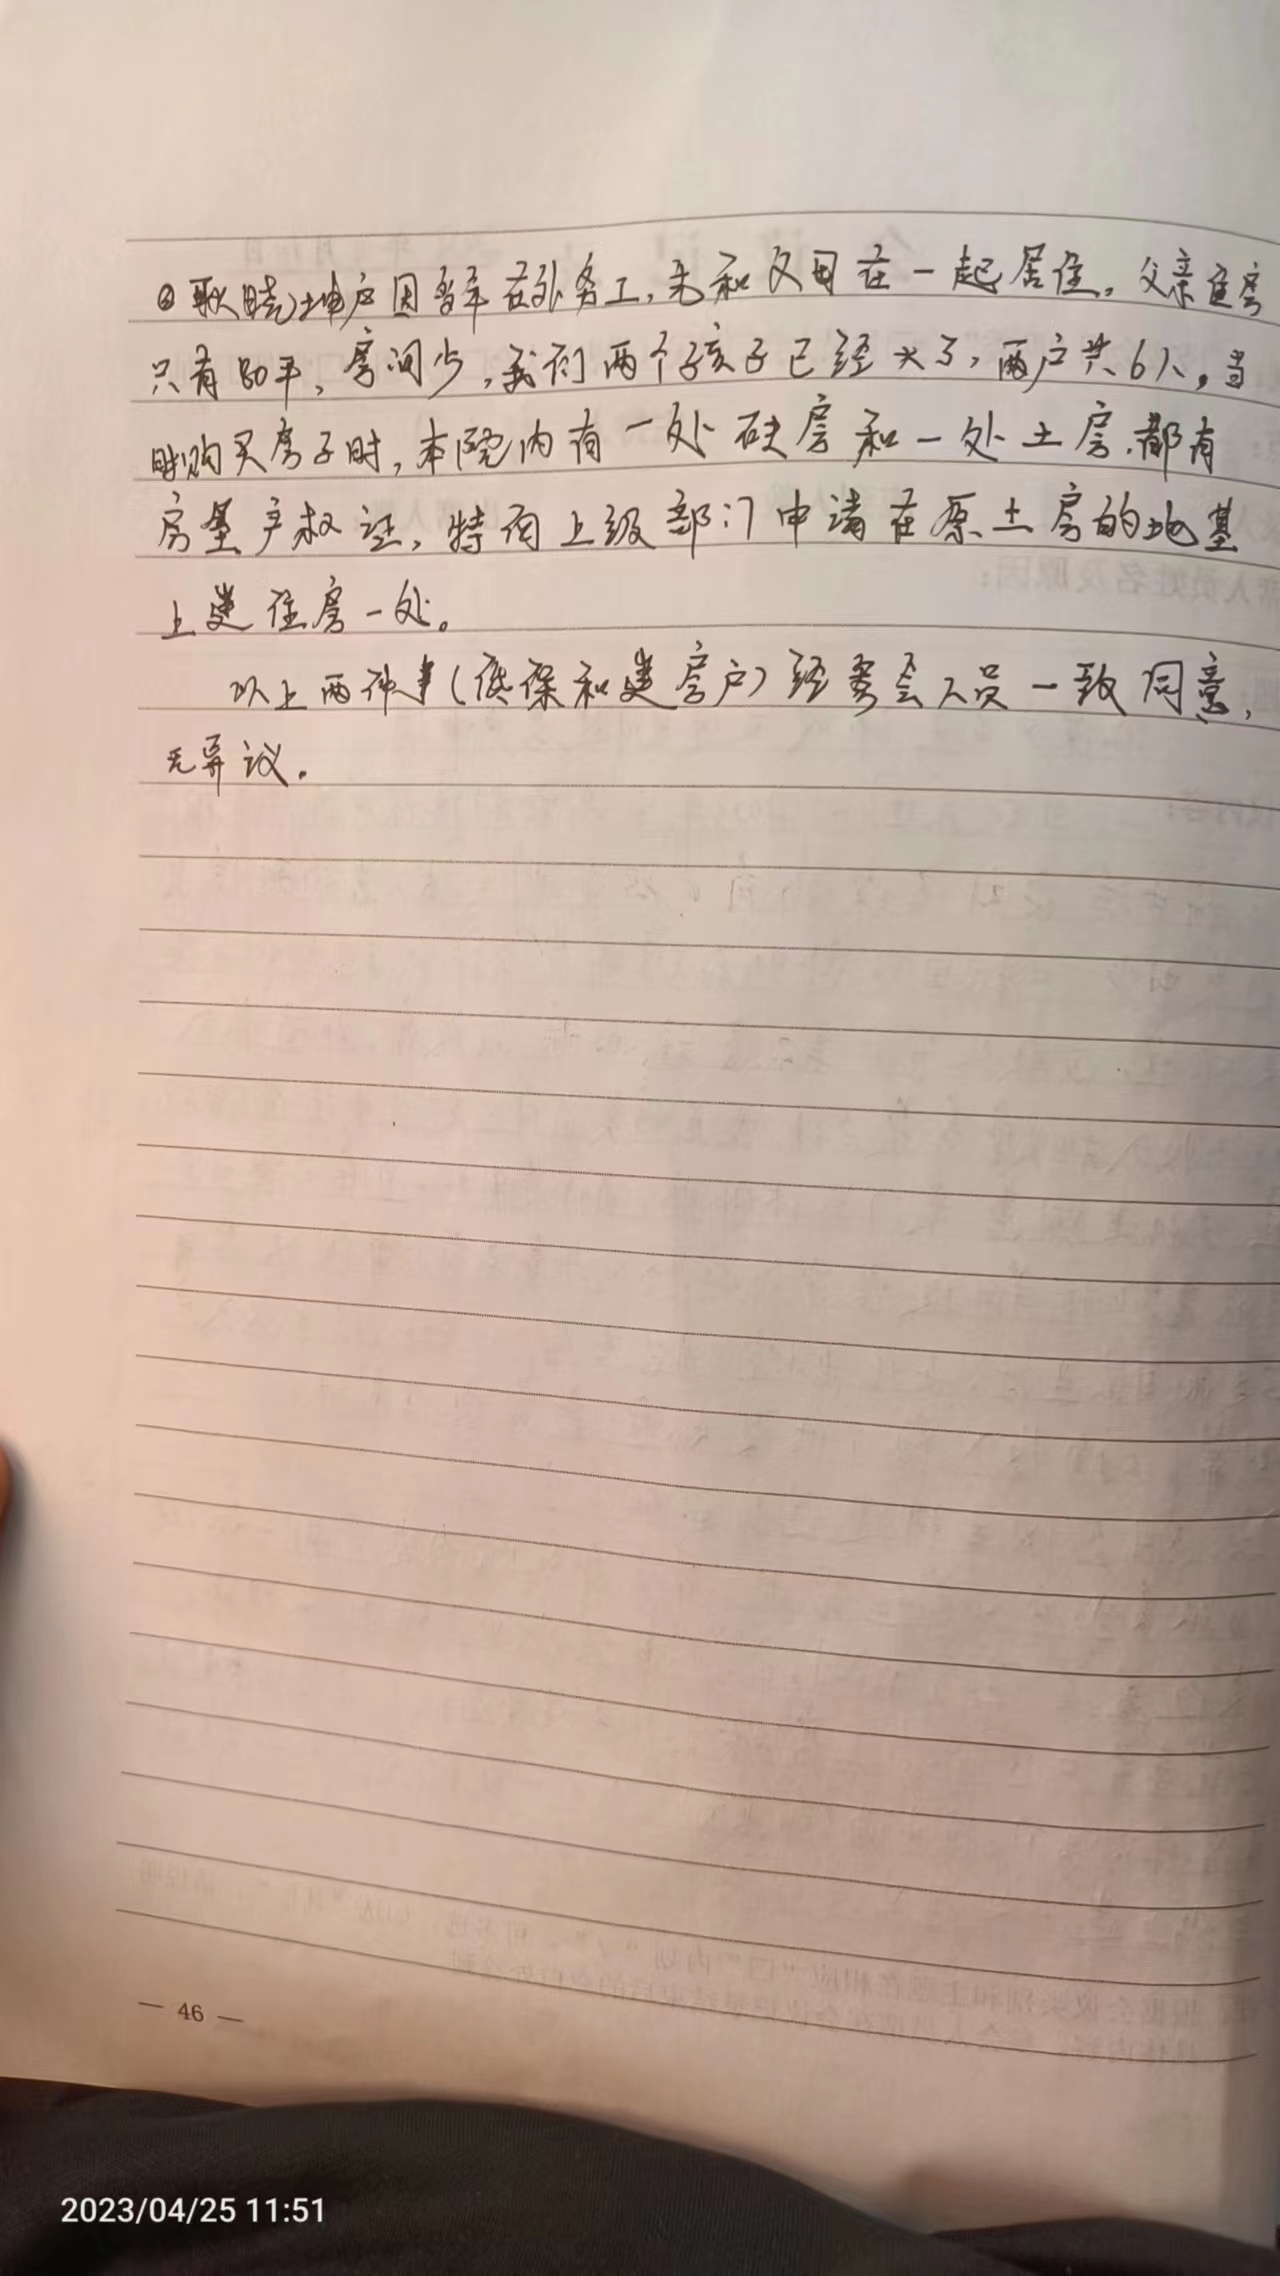 ②耿晓坤户因当年在外务工,无和父母在一起居住,父亲
只有80平,房间少,我们两个孩子已经大了,两户共6人,当
时购买房子时,本院内有一处砖房和一处土房,都有
房屋产权证,特向上级部门申请在原土房的地基
上建住房一处。
以上两件事(低保和建房户)经委会人员一致同意,
无异议。
— 46 —
2023/04/25 11:51